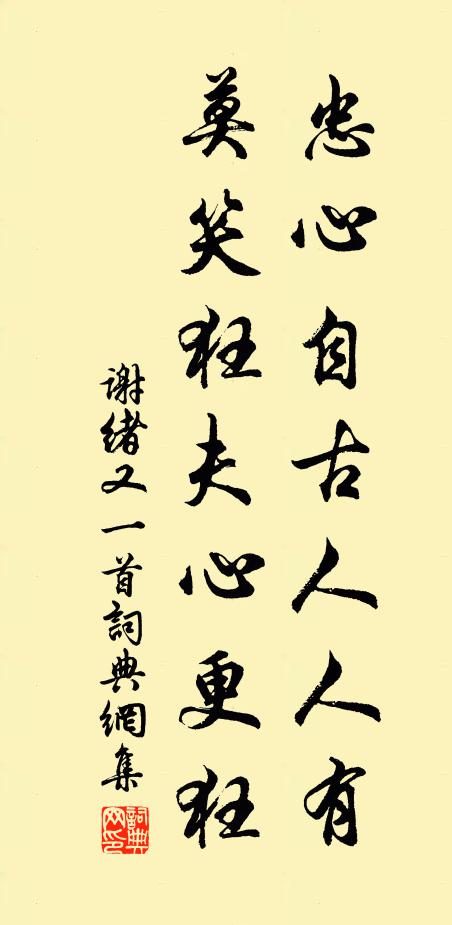 忠心自古人人有
莫笑狂夫心更狂
谢绪又一首詞典網集
詞典网印